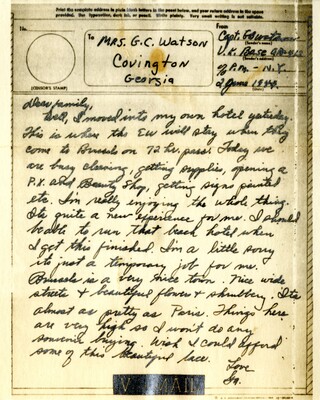 Print the complete address in plain block letters in the panel below, and your return address in the space
provided. Use typewriter, dark ink, or pencil. Write plainly. Very small writing is not suitable.
No.
(CENSOR'S STAMP)
To
MRS. G.C. WATSON
COVINGTON
GEORGIA
From
Capt.
(Sender's name)
U.K. BASE
(Sender's address)
% P.M. - N.Y.
2 June
(Date)
Dear family,
Well, I moved into my own hotel yesterday.
This is where the EW will stay when they
come to Brussels on 72 hr. pass! Today we
are busy cleaning, getting supplies, opening a
P.X. and Beauty Shop, getting signs painted
etc. I'm really enjoying the whole thing.
Its quite a new experience for me. I should
be able to run that beach hotel when
I get this finished. I'm a little sorry
its just a temporary job for me.
Brussels is a very nice town. Nice wide
streets & beautiful flowers & shrubbery. Its
almost as pretty as Paris. Things here
are very high so I won't do any
souvenir buying. Wish I could afford
some of this beautiful lace.
Love
V-MAIL